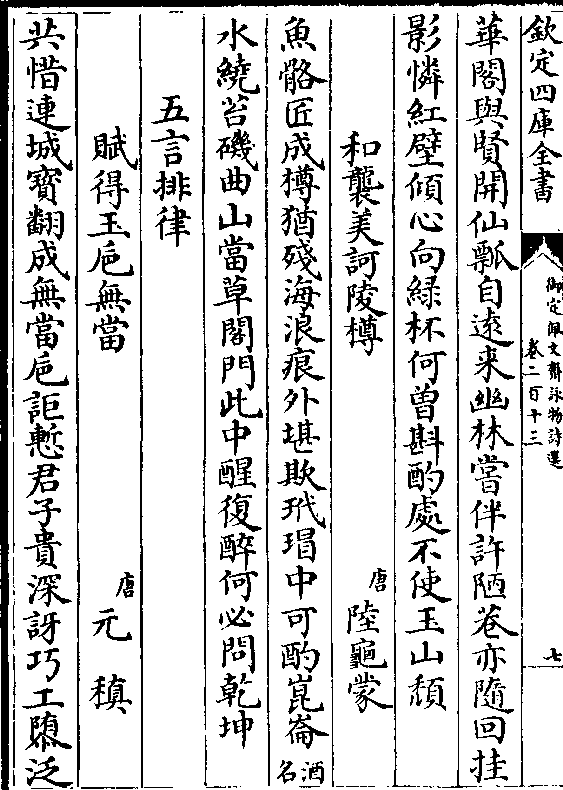 欽定四庫全書
御定佩文齋詠物詩選
卷二百十三
七
華閣與賢開仙瓢自遠来幽林嘗伴許陋巷亦隨回挂
影憐紅壁傾心向緑杯何曾斟酌處不使玉山頽
和襲美訶陵樽
唐
陸龜蒙
魚骼匠成樽猶殘海浪痕外堪欺玳瑁中可酌崑崙酒名
水繞苔磯曲山當草閣門此中醒復醉何必問乾坤
五言排律
賦得玉巵無當
唐
元稹
共惜連城寶翻成無當巵詎慙君子貴深訝巧工隳泛